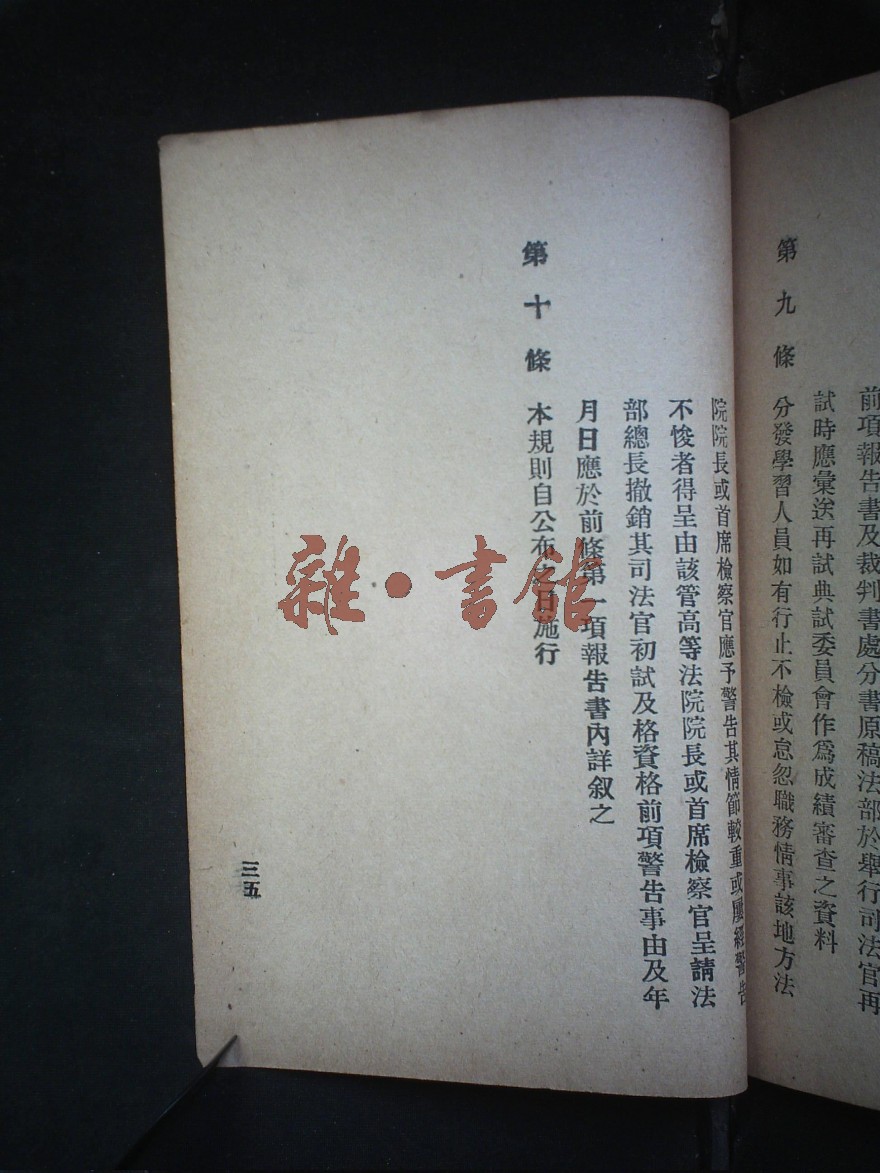 前項報告書及裁判書處分書原稿法部於舉行司法官再
試時應彙送再試典試委員會作爲成績審查之資料
第九條 分發學習人員如有行止不檢或怠忽職務情事該地方法
院院長或首席檢察官應予警告其情節較重或屢經警告
不悛者得呈由該管高等法院院長或首席檢察官呈請法
部總長撤銷其司法官初試及格資格前項警告事由及年
月日應於前條第一項報告書內詳叙之
第十條 本規則自公布之日施行
三五
雜·書館